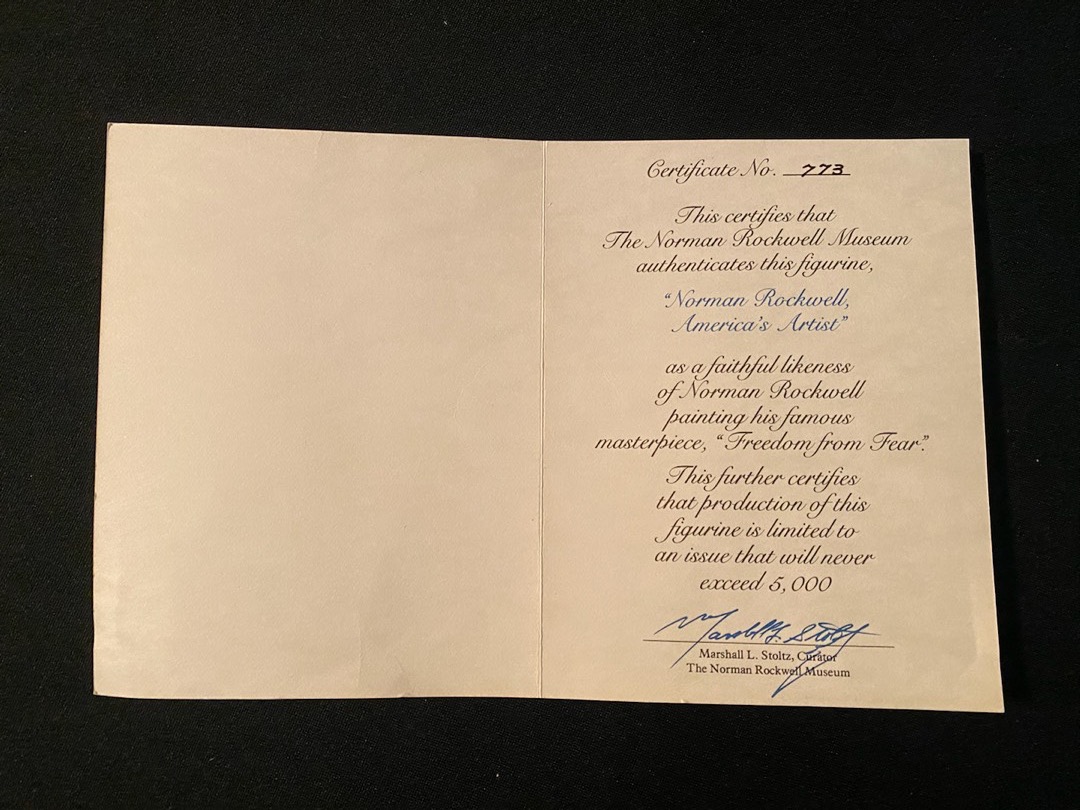 Certificate No. 773
This certifies that
The Norman Rockwell Museum
authenticates this figurine,
"Norman Rockwell,
America's Artist"
as a faithful likeness
of Norman Rockwell
painting his famous
masterpiece, "Freedom from Fear".
This further certifies
that production of this
figurine is limited to
an issue that will never
exceed 5,000
Marshall L. Stoltz
Marshall L. Stoltz, Curator
The Norman Rockwell Museum